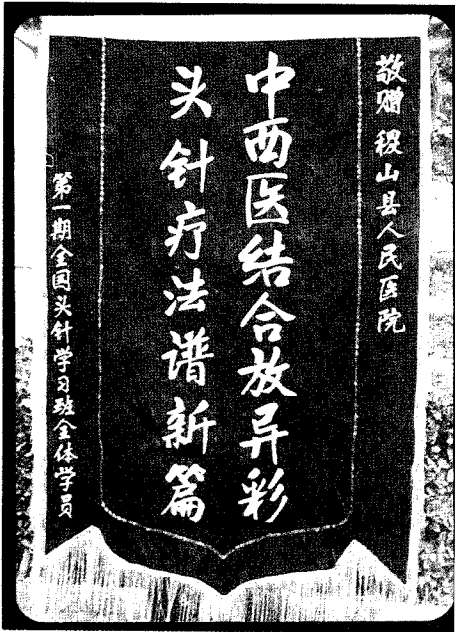 敬赠 稷山县人民医院
中西医结合放异彩
头针疗法谱新篇
第一期全国头针学习班全体学员